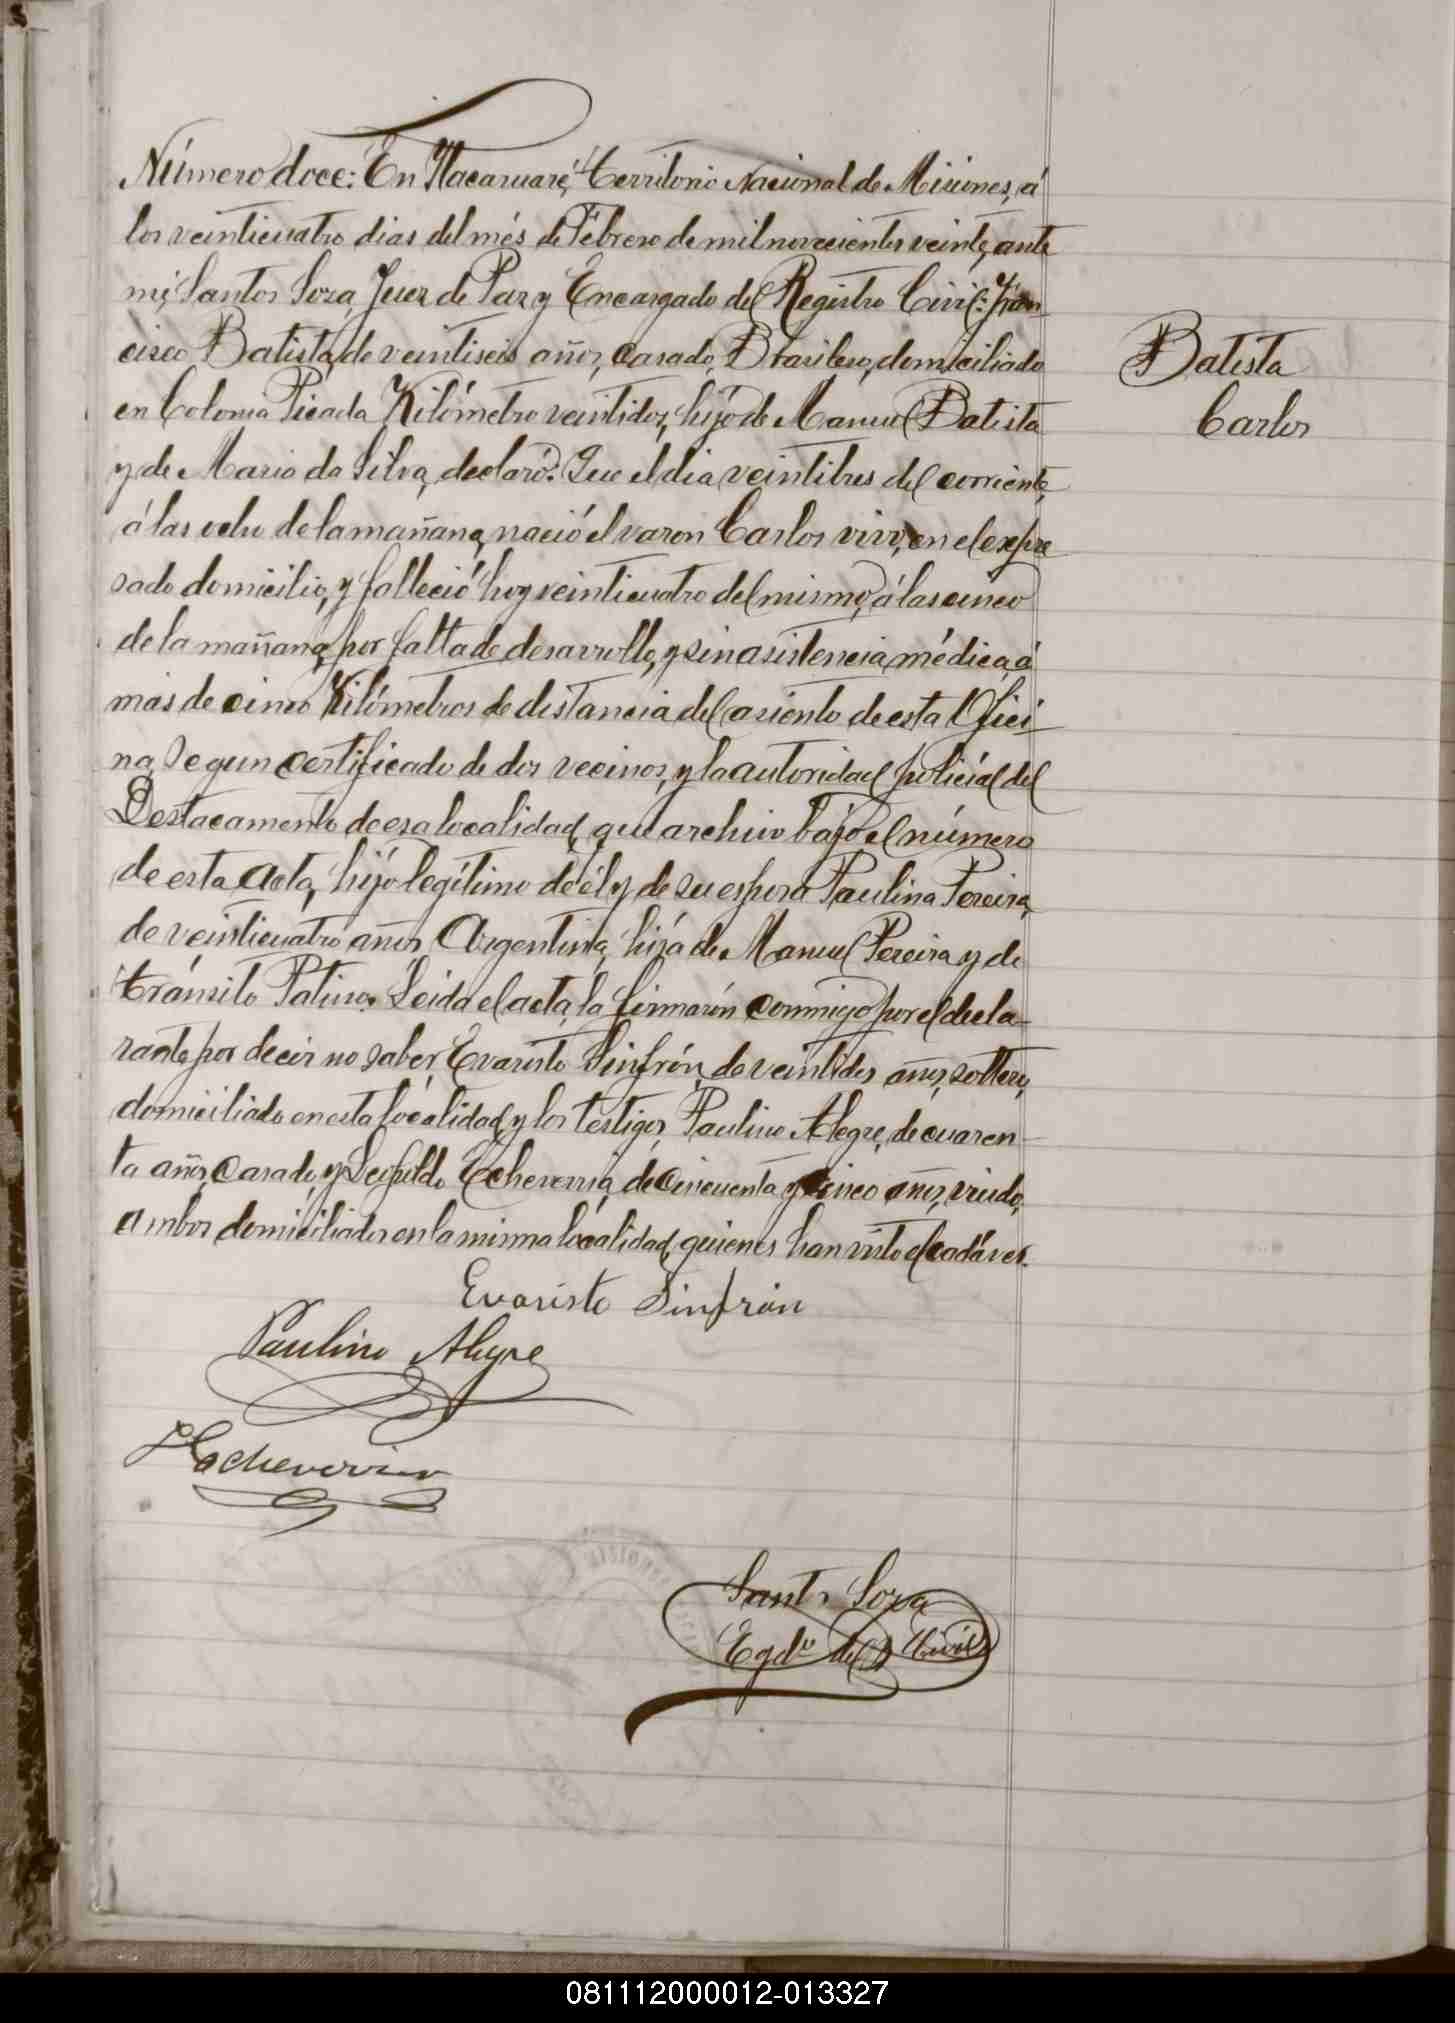 Número doce: En Itacaruaré, territorio Nacional de Misiones, á
los veinticuatro dias del més de Febrero de mil novecientos veinte, ante
mi, Santos Soza, Juez de Paz y Encargado del Registro Civil: Fran-
cisco Batista, de veintiseis años, casado, Brasilero, domiciliado
en Colonia Picada Kilómetro veintidos, hijo de Manuel Batista
y de Maria da Silva, declaró: Que el dia veintitres del corriente,
á las ocho de la mañana, nació el varon Carlos vivo, en el expre
sado domicilio, y falleció hoy veinticuatro del mismo, á las cinco
de la mañana, por falta de desarrollo, y sin asistencia médica, á
más de cinco Kilómetros de distancia del asiento de esta Ofici-
na, segun certificado de dos vecinos, y la autoridad policial del
Destacamento de esa localidad, que archivo bajo el número
de esta acta, hijo legítimo de él y de su esposa Paulina Pereira,
de veinticuatro años, Argentina, hija de Manuel Pereira y de
Tránsito Patiño. Leida el acta, la firmarón conmigo por el decla-
rante por decir no saber, Evaristo Sinfrón, de veintidos años, soltero,
domiciliado en esta localidad, y los testigos, Paulino Alegre, de cuaren-
ta años, casado, y Leopoldo Echeverria, de cincuenta y cinco años, viudo,
ambos domiciliados en la misma localidad, quienes han visto el cadáver.
Evaristo Sinfrón
Paulino Alegre
L Echeverria
Santos Soza
Egdo del R Civil
Batista
Carlos
081112000012-013327